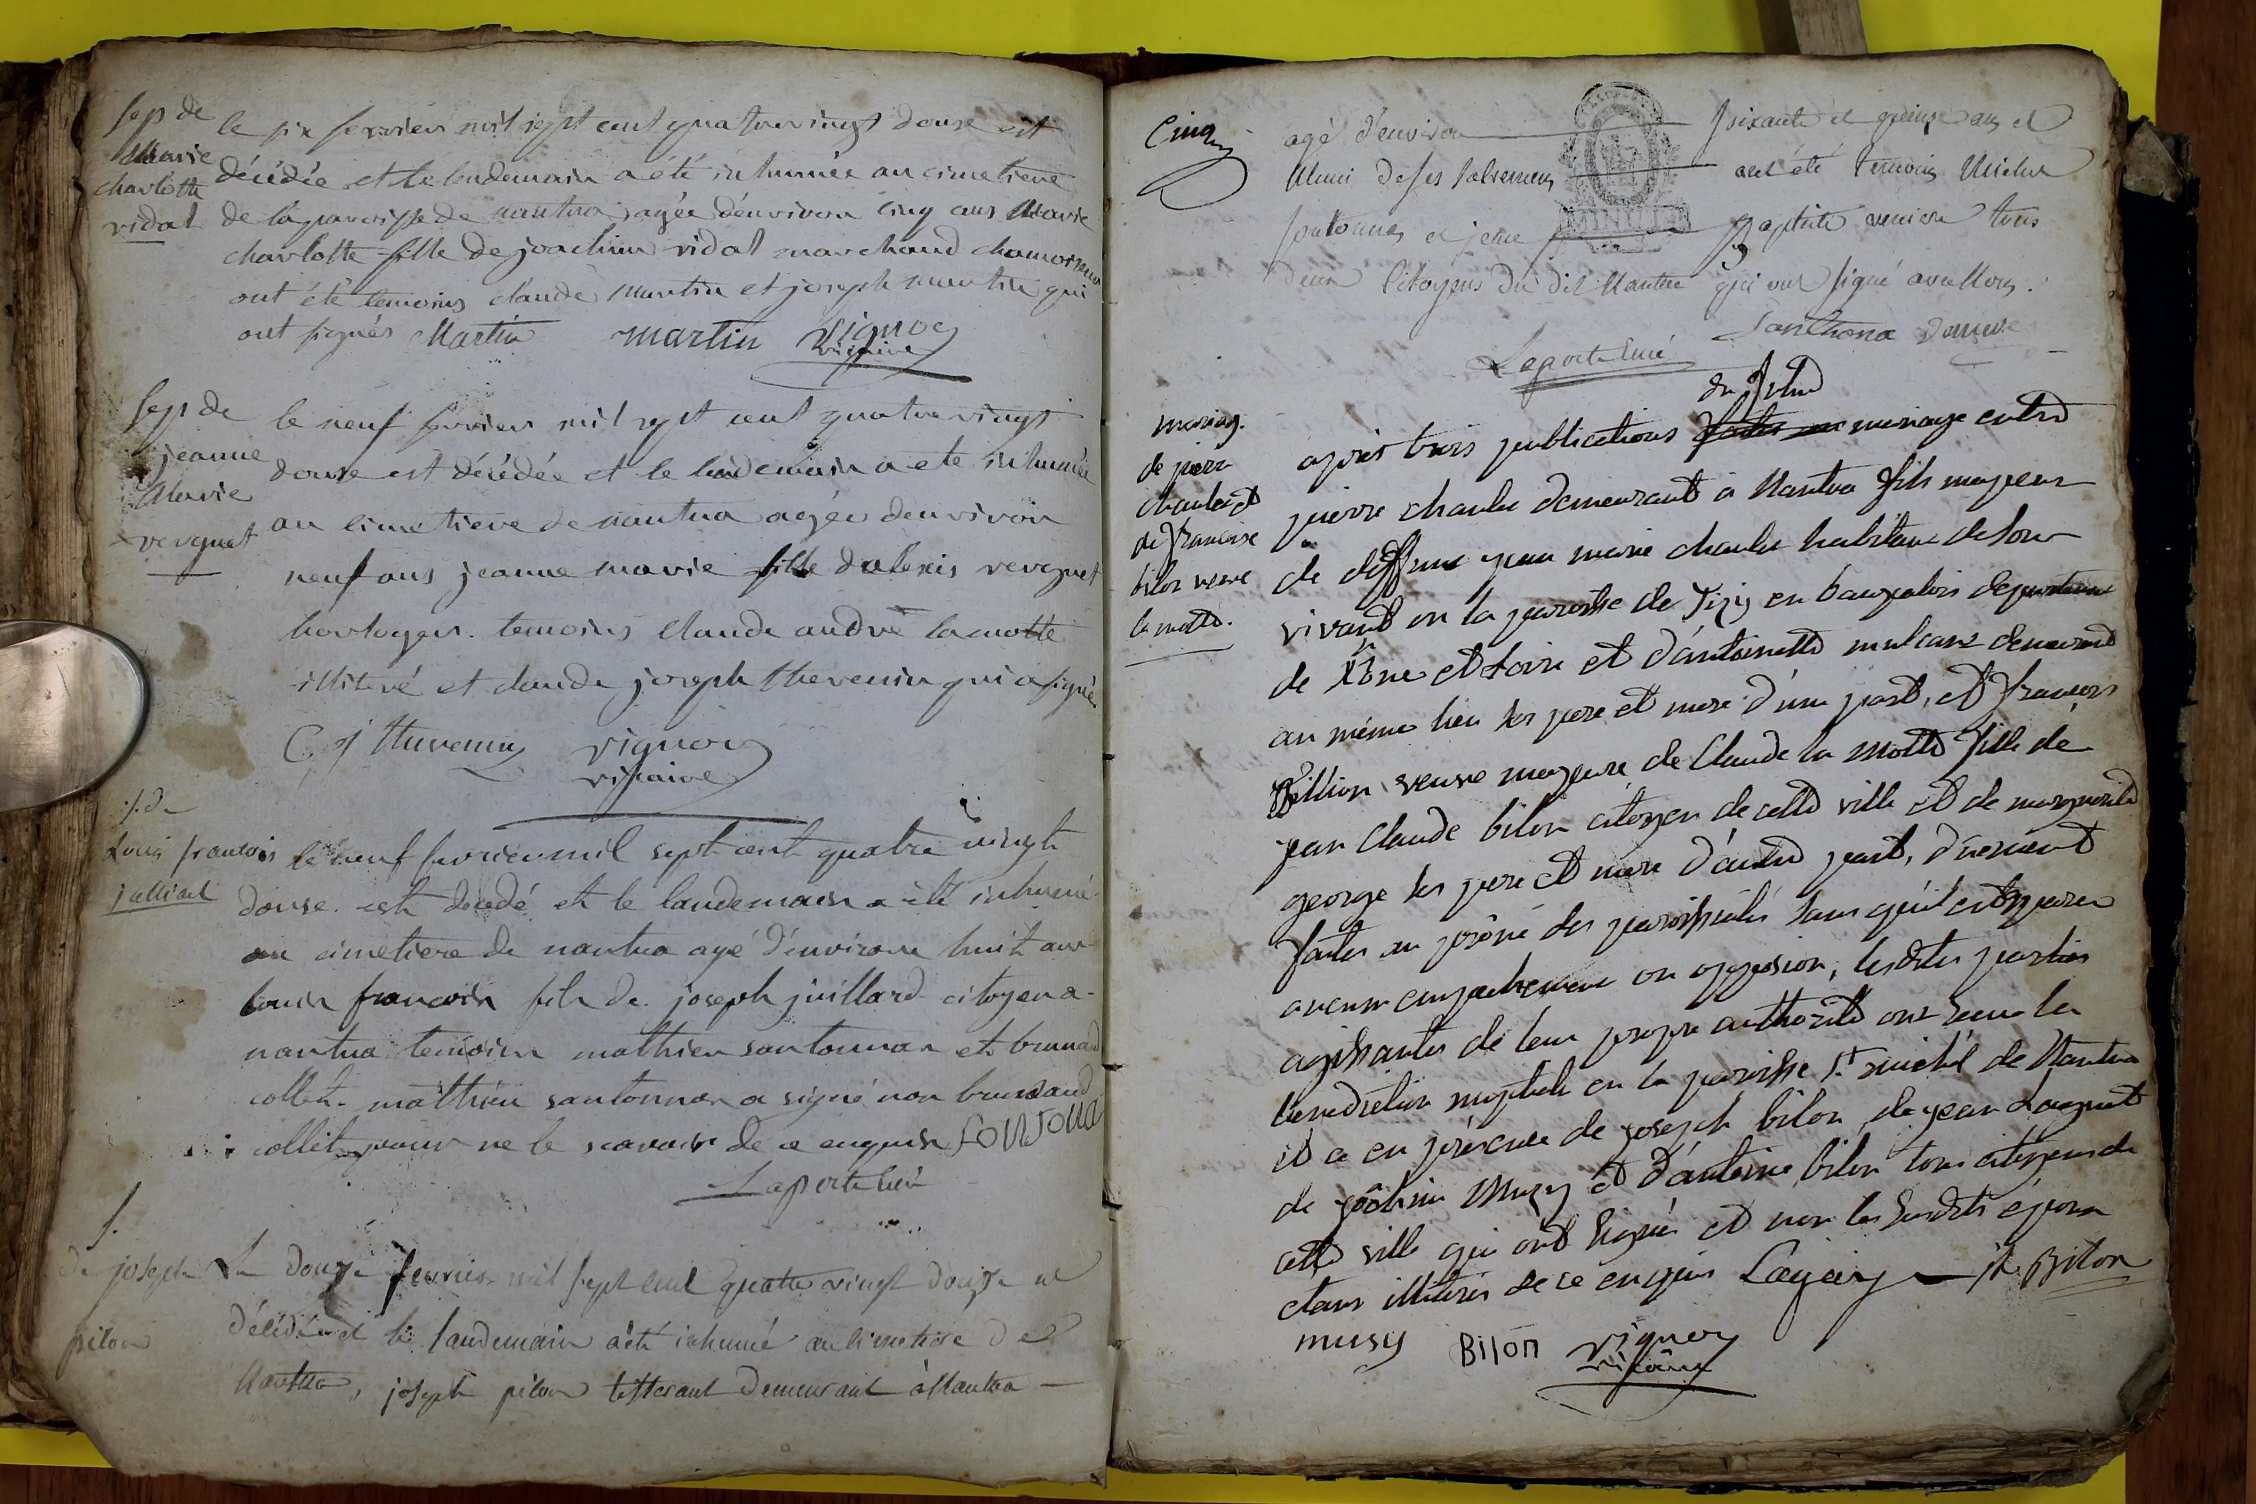 sep de
Marie
charlotte
vidal
le six fevrier mil sept cent quatrevingt douse est
décédée et le lendemain a été inhumée au cimetiere
de la paroisse de nantua agée d'environ cinq ans Marie
charlotte fille de joachim vidal marchand chamoiseur
ont été temoins claude martin et joseph martin qui
ont signés Martin martin vignon
vicaire
sep de
jeanne
Marie
verguet
le neuf fevrier mil sept cent quatre vingt
douse est décédée et le lendemain a ete inhumée
au cimetiere de nantua agée denviron
neuf ans jeanne marie fille dalexis verguet
horloger. temoins claude andré lamotte
illitéré et claude joseph thevenin qui a signé
C j thevenin vignon
vicaire
s. de
Louis francois
juilliard
le neuf fevrier mil sept cent quatre vingt
douse est décédé et le landemain a été inhumé
au cimetiere de nantua agé d'environ huit ans
louis francois fils de joseph juillard citoyen a
nantua temoins mathieu santonnax et
collet. mathieu santonnax a signé non
collet pour ne le scavoir de ce enquis
Laporte curé
s.
de joseph
pilon
Le douze fevrier mil sept cent quatre vingt douze est
décédé et le landemain a été inhumé au cimetiere de
Nantua, joseph pilon tisserant demeurant à Nantua
Cinq
agé d'environ soixante et quinze ans et
Muni de ses sacremens ont été temoins
et baptiste tous
deux Citoyens du dit Nantua qui ont signé avec Nous.
Santhona
Laporte curé
mariag.
de pierre
chaulet et
de francoise
bilon veuve
la motte.
du futur
après trois publications faites mariage entre
pierre demeurant a Nantua fils majeur
de deffunt jean marie habitant de son
vivant en la paroisse de Tizy en baujolois departement
de Rône et Loire et d'antoinette demeurant
au même lieu ses pere et mere d'une part, et francois
Billion veuve majeure de Claude la Motte fille de
jean Claude bilon citoyen de cette ville et de marguerite
george ses pere et mere d'autre part, düement
faites au prône des paroissiales sans qu'il
aucun empechement ou opposion, lesdites parties
agissantes de leur propre authorité ont recu la
benediction nuptiale en la paroisse St michel de Nantua
et ce en présence de joseph bilon, de jean
de joachim Muzy et d'antoine bilon tous citoyens de
cette ville qui ont signés et non les susdits epoux
etans illiterés de ce enquis jh Bilon
musy Bilon vignon
vicaire